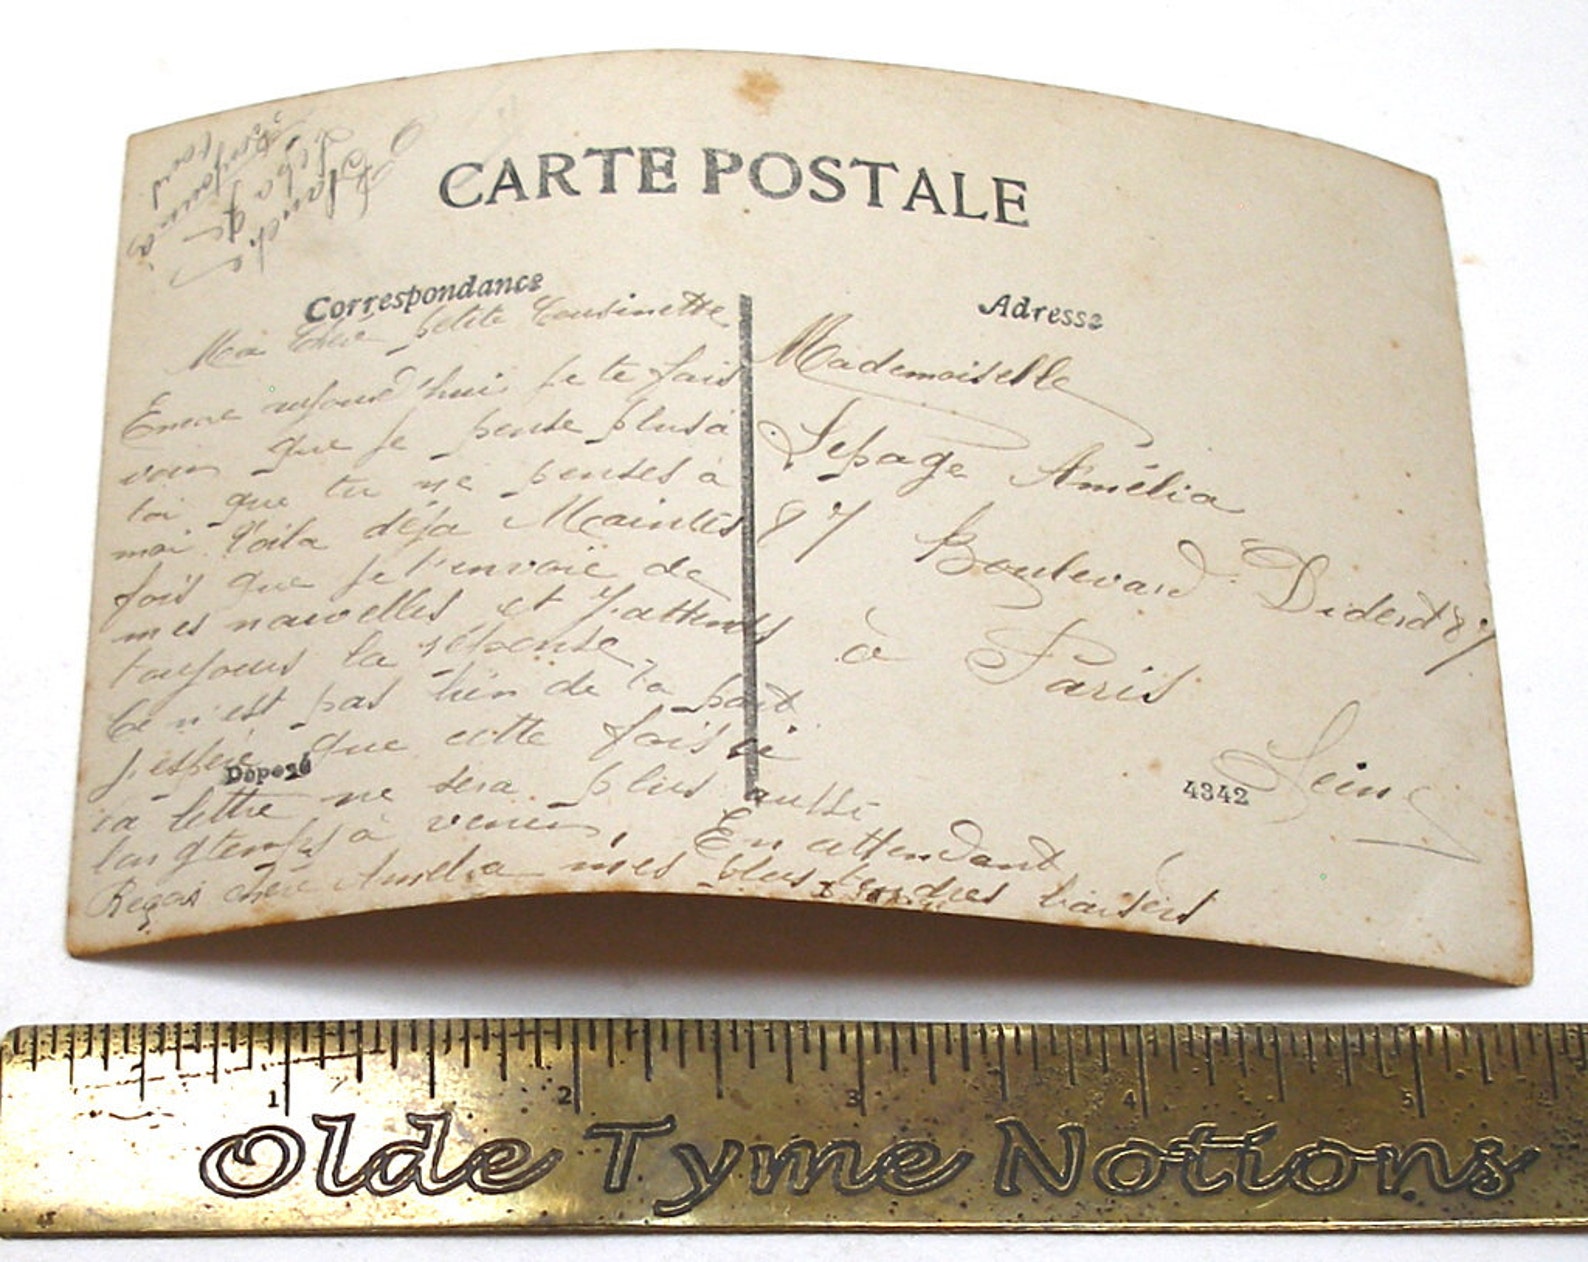 CARTE POSTALE
Correspondance
Ma Chère petite Cousinette
Encore aujourd'hui je te fais
voir que je pense plus à
toi que tu ne penses à
moi. Voila déja Maintes
fois que je t'envoie de
mes nouvelles et j'attends
toujours la réponse
Ce n'est pas bien de ta part
j'espère que cette fois ci
ta lettre ne sera plus aussi
longtemps à venir. En attendant
Reçois chère Amélia mes plus tendres baisers
Déposé
Adresse
Mademoiselle
Lepage Amélia
87 Boulevard Diderot 87
à Paris
Seine
4342
1
2
3
4
5
Olde Tyme Notions